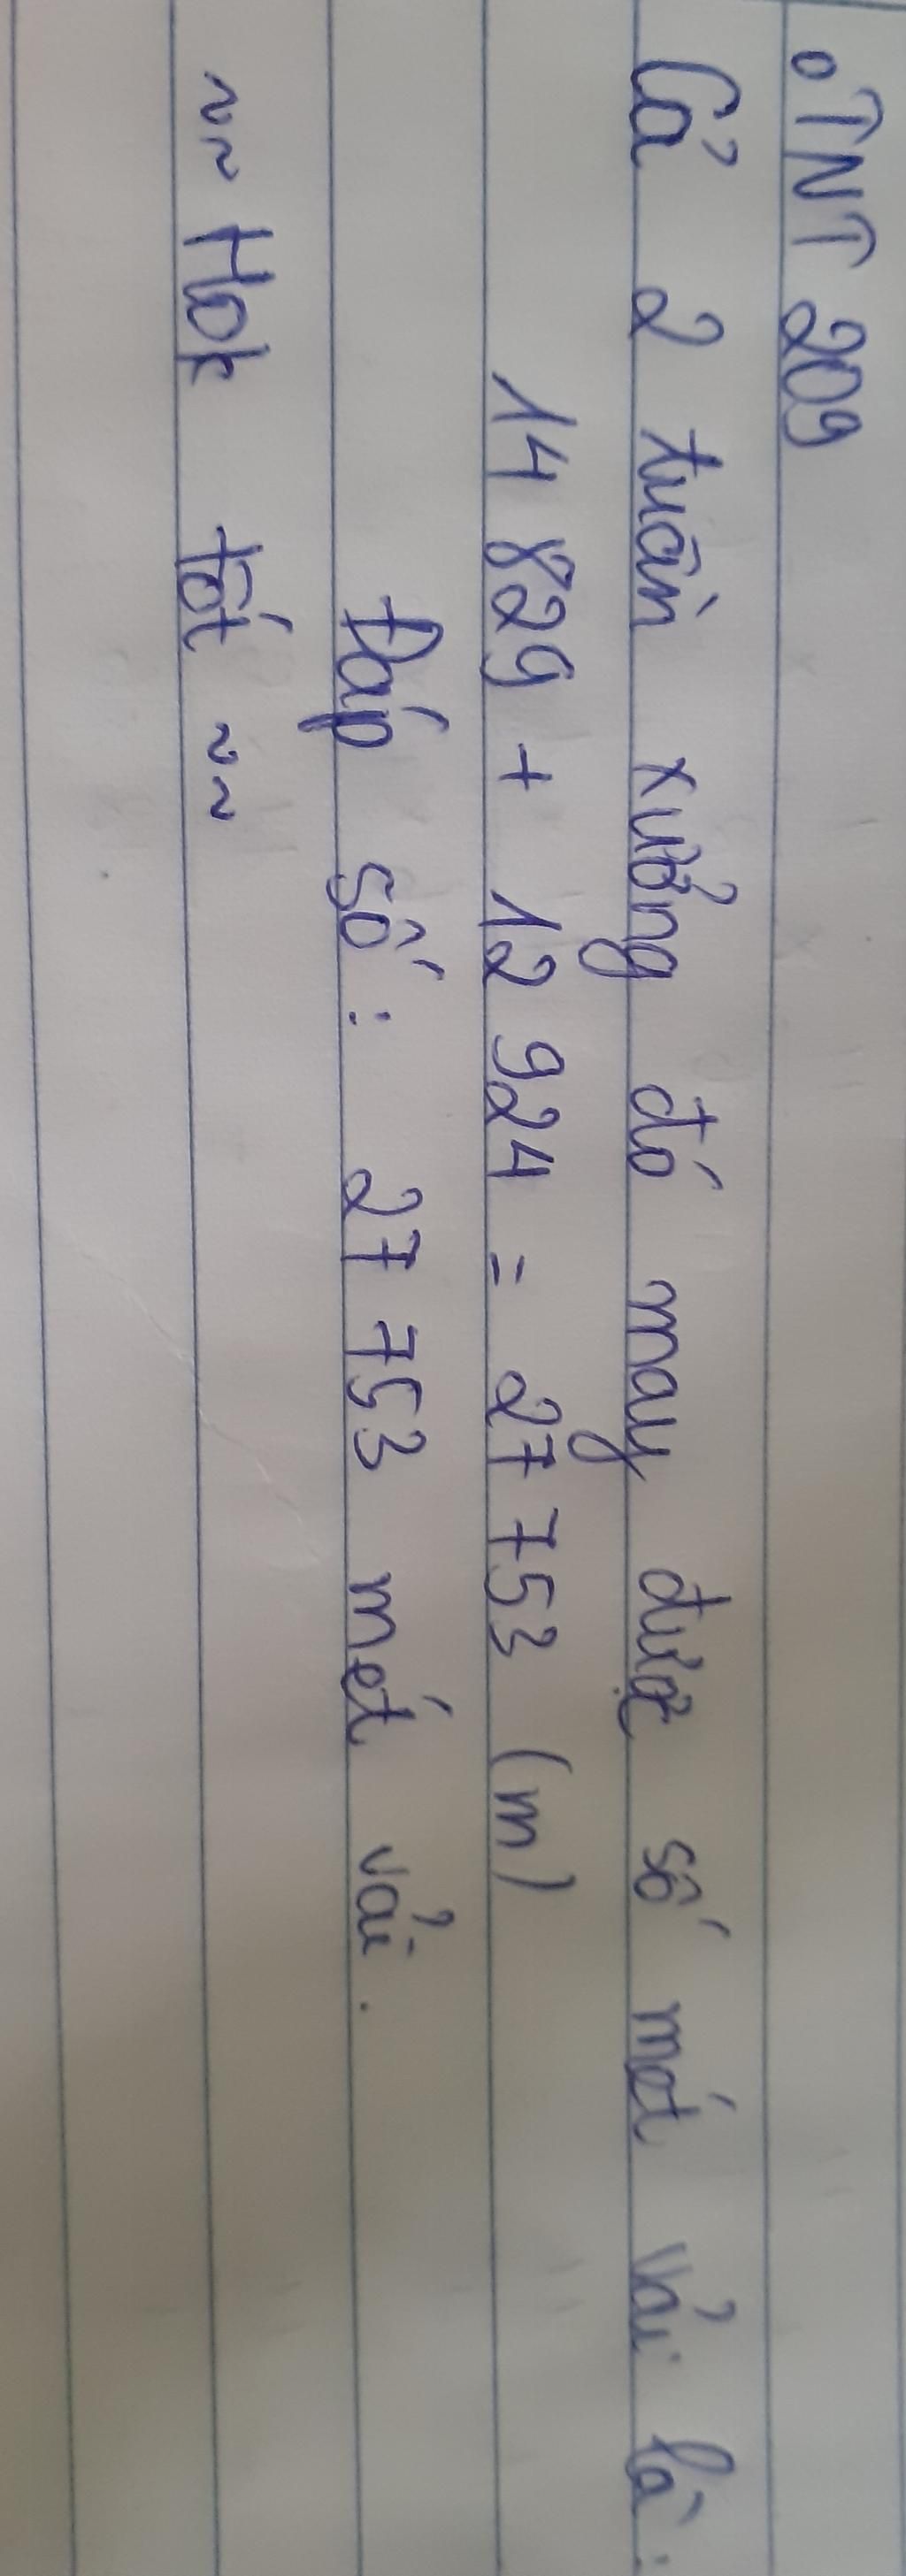 oTNT209
Cả 2 tuần xưởng đó may được số mét vải là:
14 829 + 12 924 = 27 753 (m)
Đáp số: 27 753 mét vải.
~~ Hok tốt ~~